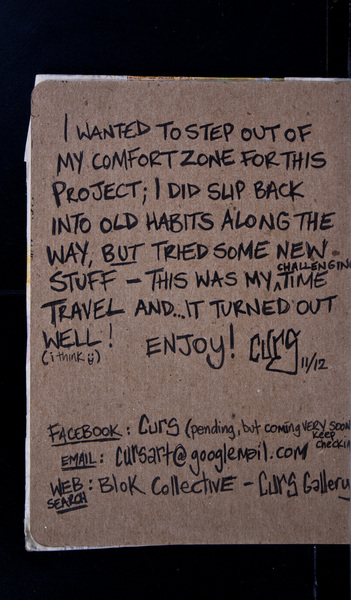 I WANTED TO STEP OUT OF
MY COMFORT ZONE FOR THIS
PROJECT; I DID SLIP BACK
INTO OLD HABITS ALONG THE
WAY, BUT TRIED SOME NEW
STUFF – THIS WAS MY CHALLENGING TIME
TRAVEL AND...IT TURNED OUT
WELL!
(i think :))
ENJOY! CURS 11/12
FACEBOOK: CURS (pending, but coming VERY SOON KEEP
EMAIL: cursart@googlemail.com
WEB SEARCH: BLOK COLLECTIVE – CURS GALLERY